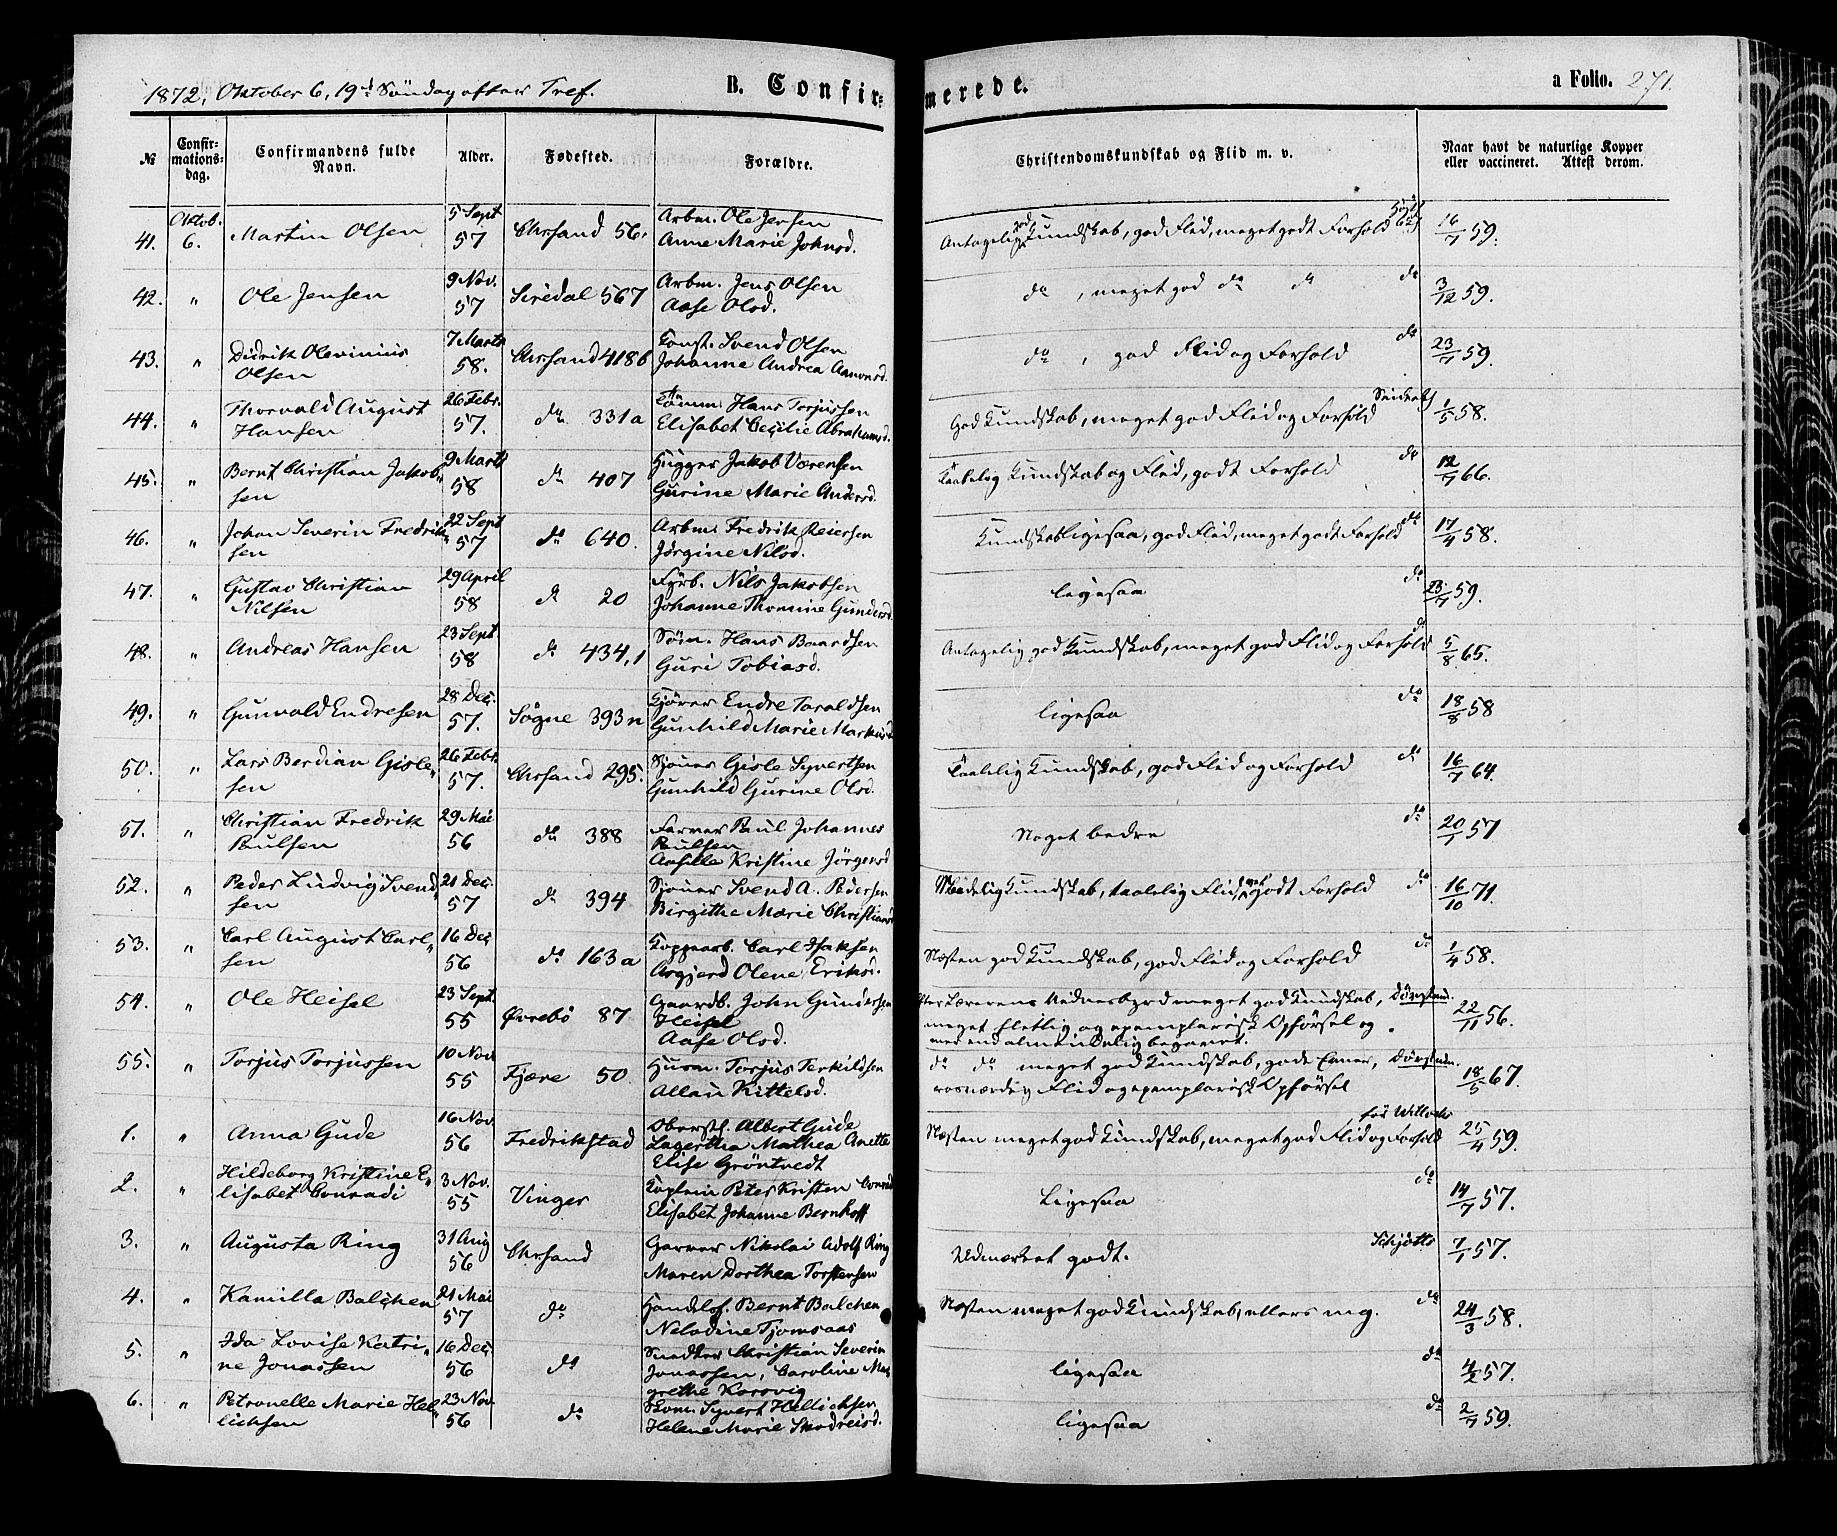 1872, Oktober 6, 19d Søndag efter Tref.
B. Confirmerede.
a Folio. 271.
№
Confirmationsdag.
Confirmandens fulde Navn.
Alder.
Fødested.
Forældre.
Christendomskundskab og Flid m. v.
Naar havt de naturlige Kopper eller vaccineret. Attest derom.
41. Oktob. 6. Martin Olsen 5 Sept 57 Chrsand 56. Arbm. Ole Jensen
Anne Marie Johnsd. Antagelig god Kundskab, god Flid, meget godt Forhold 16/7 59.
42. " Ole Jensen 9 Nov. 57 Siredal 567 Arbm. Jens Olsen
Aase Olsd. do, meget god do do do 3/12 59.
43. " Didrik Olevinius
Olsen 7 Marts 58. Chrsand 418b Const. Svend Olsen
Johanne Andrea Aanonsd. do, god Flid og Forhold do 23/7 59.
44. " Thorvald August
Hansen 26 Febr. 57. do 331a Tømm. Hans Torjussen
Elisabet Cecilie Abrahamsd. God Kundskab, meget god Flid og Forhold 1/5 58.
45. " Bernt Christian Jakob-
sen 9 Marts 58 do 407 Hugger Jakob Sørensen
Gurine Marie Andersd. Taalelig Kundskab og Flid, godt Forhold do 12/7 66.
46. " Johan Severin Fredrik-
sen 22 Sept 57 do 640. Arbm. Fredrik Reiersen
Jørgine Nilsd. Kundskab ligesaa, god Flid, meget godt Forhold do 17/4 58.
47. " Gustav Christian
Nilsen 29 April 58 do 20 Fyrb. Nils Jakobsen
Johanne Thomine Gundersd. ligesaa do 23/7 59.
48. " Andreas Hansen 23 Sept 58 do 434,1 Søm. Hans Baardsen
Guri Tobiasd. Antagelig god Kundskab, meget god Flid og Forhold do 5/8 65.
49. " Gunvald Endresen 28 Dec. 57. Søgne 393n Kjører Endre Taraldsen
Gunhild Marie Markusd ligesaa do 18/8 58
50. " Lars Berdian Gisle-
sen 26 Febr. 57. Chrsand 295. Sjouer Gisle Syvertsen
Gunhild Gurine Olsd. Taalelig Kundskab, god Flid og Forhold do 16/7 64.
51. " Christian Fredrik
Paulsen 29 Mai 56 do 388 Farver Paul Johannes
Paulsen
Kristine Jørgensd Noget bedre do 20/1 57
52. " Peder Ludvig Svend-
sen 21 Dec. 57 do 394 Sjouer Svend A. Pedersen
Birgithe Marie Christians Maadelig Kundskab, taalelig Flid, godt Forhold do 16/10 71.
53. " Carl August Carl-
sen 16 Dec 56 do 163a Kopperarb. Carl Isaksen
Asgjerd Olene Eriksd. Næsten god Kundskab, god Flid og Forhold do 1/4 58.
54. " Ole Heisel 23 Sept. 55 Øvrebø 87 Gaardb. John Gundersen
Heisel
Aase Olsd. Efter Lærerens Vidnesbyrd meget god Kundskab, Døvstum.
meget flittig og exemplarisk Opførsel og
mer end almindelig begavet. 22/11 56.
55. " Torjus Torjussen 10 Nov 55 Fjære 50. Husm. Torjus Terkildsen
Allau Kittelsd. do do meget god Kundskab, gode Evner, Døvstum.
rosværdig Flid og exemplarisk Opførsel 18/5 67.
1. " Anna Gude 16 Nov 56 Fredrikstad Oberstl. Albert Gude
Lagertha Mathea Anette
Elise Grøntvedt Næsten meget god Kundskab, meget god Flid og Forhold 25/4 59.
2. " Hildeborg Kristine E-
lisabet Conradi 3 Nov. 55 Vinger Kaptein Peter Kristen Conradi
Elisabet Johanne Bernhoft Ligesaa do 14/7 57.
3. " Augusta Ring 31 Aug 56 Chrsand Garver Nikolai Adolf Ring
Maren Dorthea Torstensen Udmærket godt. Schjøtts 7/1 57.
4. " Kamilla Balchen 21 Mai 57 do Handelsf. Bernt Balchen
Neladine Tjomsaas Næsten meget god Kundskab, ellers mg. do 24/3 58.
5. " Ida Lovise Katri-
ne Jonassen 16 Dec 56 do Snedker Christian Severin
Jonassen, Caroline Mar-
grethe Korsvig ligesaa do 4/2 57.
6. " Petronelle Marie Hel-
lichsen 23 Nov 56 do Skom. Syvert Hellichsen
Helene Marie Skadreisd. ligesaa do 2/7 59.